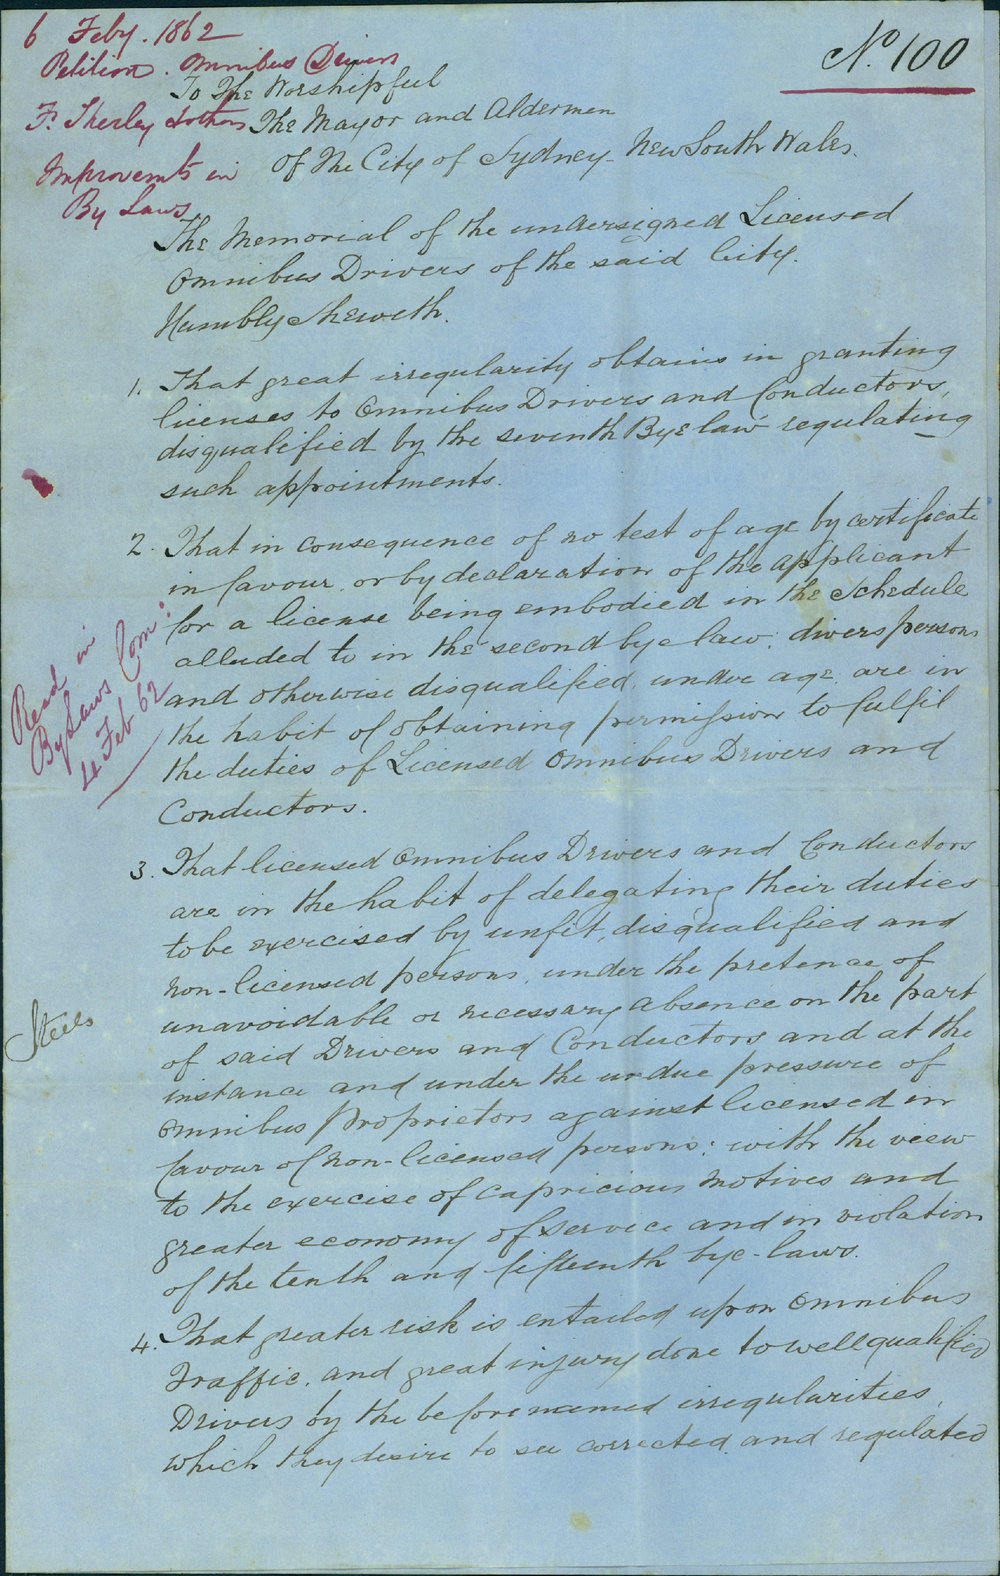 6 Feby. 1862
Petition. Omnibus Drivers
F. Sherley & others
Improvemts in
By Laws
No. 100
To The Worshipful
The Mayor and Aldermen
Of The City of Sydney - New South Wales.
The Memorial of the undersigned Licensed
Omnibus Drivers of the said City.
Humbly Sheweth.
1. That great irregularity obtains in granting
licenses to Omnibus Drivers and Conductors,
disqualified by the seventh Bye law regulating
such appointments.
2. That in consequence of no test of age by certificate
in favour, or by declaration of the applicant
for a license being embodied in the Schedule
alluded to in the second bye law: divers persons
and otherwise disqualified, under age, are in
the habit of obtaining permission to fulfil
the duties of Licensed Omnibus Drivers and
Conductors.
Read in
By Laws Com:
4 Feb 62
3. That licensed Omnibus Drivers and Conductors
are in the habit of delegating their duties
to be exercised by unfit, disqualified and
non-licensed persons, under the pretence of
unavoidable or necessary absence on the part
of said Drivers and Conductors and at the
instance and under the undue pressure of
Omnibus Proprietors against licensed in
favour of non-licensed persons: with the view
to the exercise of capricious motives and
greater economy of service and in violation
of the tenth and fifteenth bye-laws.
4. That greater risk is entailed upon Omnibus
Traffic, and great injury done to well qualified
Drivers by the beforenamed irregularities,
which they desire to see corrected, and regulated